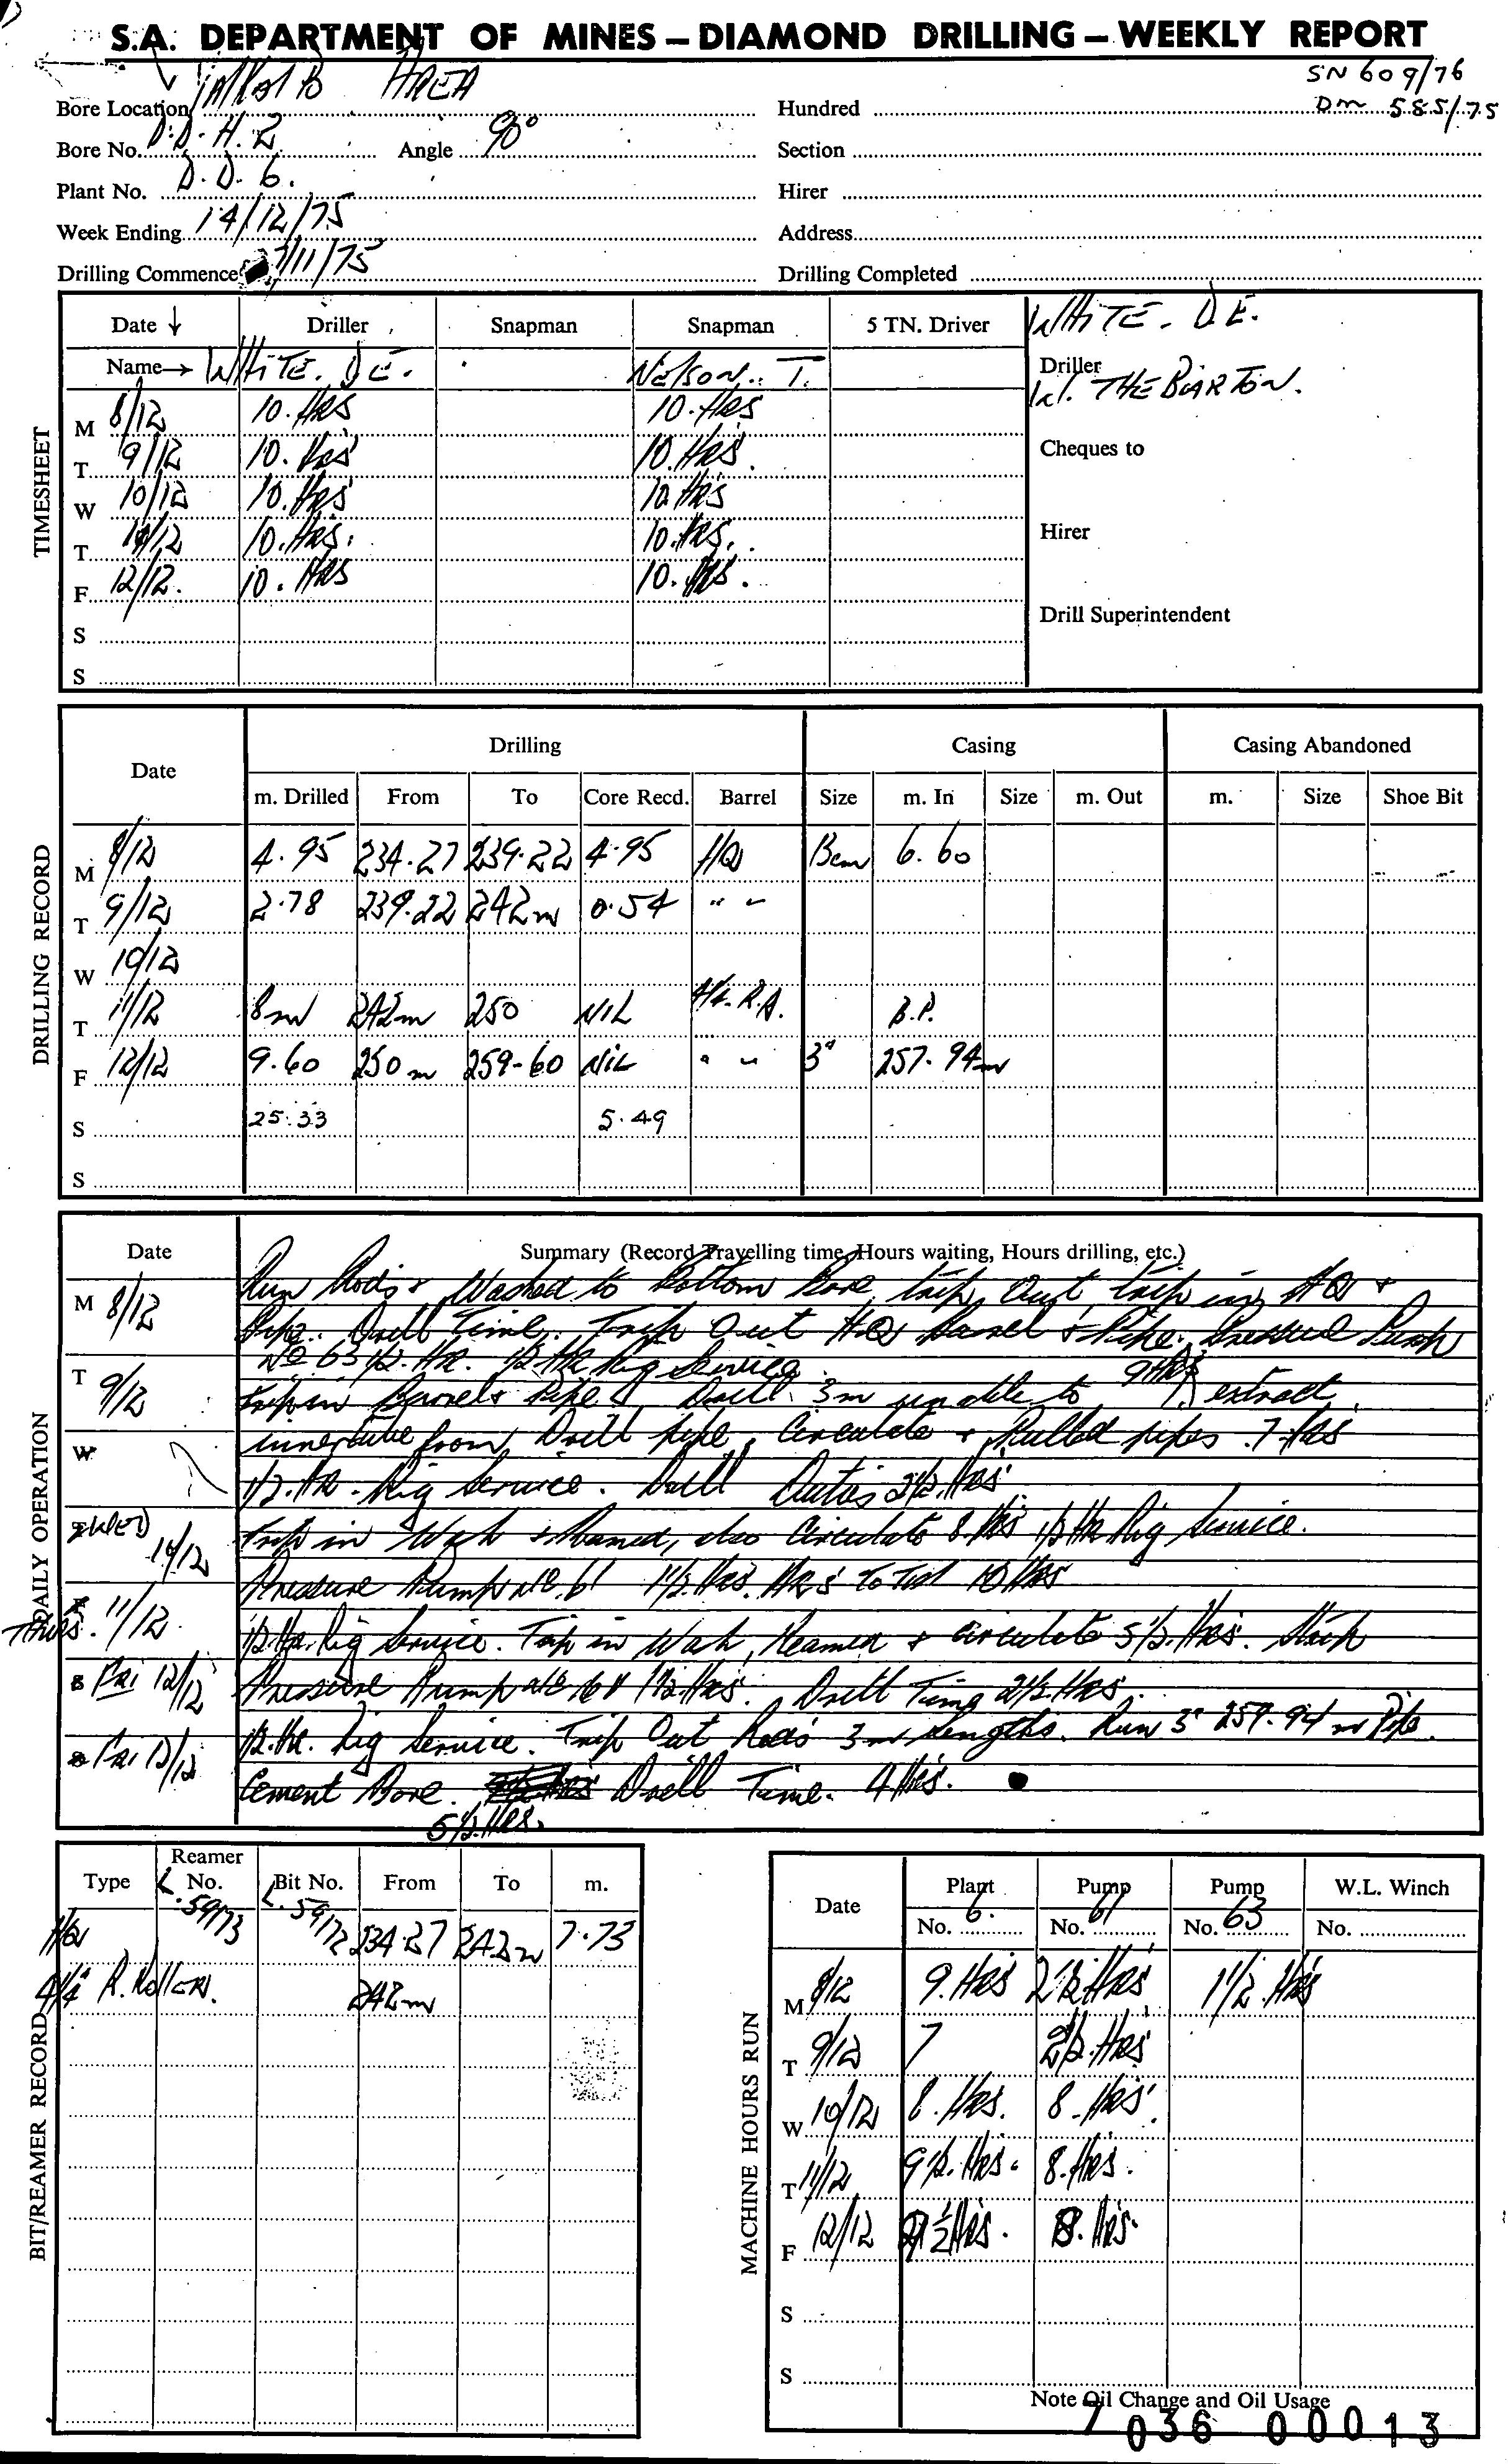 S.A. DEPARTMENT OF MINES – DIAMOND DRILLING – WEEKLY REPORT
SN 609/76
DM 585/75
Bore Location AREA Hundred
Bore No. D.D.H. 2 Angle 90° Section
Plant No. D.D. 6. Hirer
Week Ending 14/12/75 Address
Drilling Commence 7/11/75 Drilling Completed
TIMESHEET
Date ↓ Driller Snapman Snapman 5 TN. Driver WHITE. D.E.
Name→ WHITE. D.E. Nelson. T. Driller
M 8/12 10. HRS 10. HRS W. THEBARTON.
T 9/12 10. Hrs 10. Hrs. Cheques to
W 10/12 10. Hrs 10 Hrs
T 11/12 10. Hrs. 10. Hrs. Hirer
F 12/12. 10. HRS 10. Hrs.
S Drill Superintendent
S
DRILLING RECORD
Date Drilling Casing Casing Abandoned
m. Drilled From To Core Recd. Barrel Size m. In Size m. Out m. Size Shoe Bit
M 8/12 4.95 234.27 239.22 4.95 HQ 6.60
T 9/12 2.78 239.22 242m 0.54 " "
W 10/12
T 11/12 8m 242m 250 NIL R.A. B.P.
F 12/12 9.60 250m 259-60 NIL " " 3" 257.94m
S 25.33 5.49
S
DAILY OPERATION
Date Summary (Record Travelling time, Hours waiting, Hours drilling, etc.)
M 8/12 Run Rods & Washed to Bottom Bore, trip Out, trip in HQ &
Pipe. Drill Time. Trip Out HQ Barrel & Pipe. Pressure Pump
No 63 1½. HR. ½ HR Rig Service. 9 HRS
T 9/12 Trip in Barrel & pipe Drill 3m unable to extract
innertube from Drill pipe. Circulate & Pulled pipes. 7 Hrs
W ½. HR. Rig Service. Drill 2½. Hrs.
WED 10/12 Trip in Wash & Reamed, also Circulate 8 Hrs ½ HR Rig Service.
Pressure Pump No. 61 1½. Hrs. Hrs To Tot 10 Hrs
Thurs. 11/12 ½. Hr. Rig Service. Trip in Wash, Reamed & circulate 5½. Hrs.
S Fri 12/12 Pressure Pump No 61 1½. Hrs. Drill Time 2½. Hrs.
S Fri 12/12 ½. Hr. Rig Service. Trip Out Rods 3m lengths. Run 3" 257.94m Pipe.
Cement Bore. Drill Time. 4 Hrs.
5½. HRS.
BIT/REAMER RECORD
Type Reamer No. Bit No. From To m.
HQ L.59173 L.59172 234.27 242m 7.73
4¼ R. ROLLER. 242m
MACHINE HOURS RUN
Date Plant No. 6. Pump No. 61 Pump No. 63 W.L. Winch No.
M 8/12 9. Hrs 2½ Hrs 1½. Hrs
T 9/12 7 2½. Hrs
W 10/12 8. Hrs. 8. Hrs.
T 11/12 9½. Hrs. 8. Hrs.
F 12/12 8. Hrs.
S
S
Note Oil Change and Oil Usage
7 036 00013